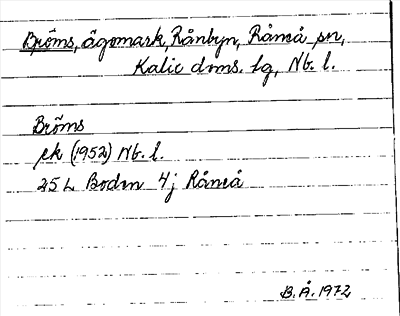 Bröms, ägomark, Rånbyn, Råneå sn,
Kalix dms. lg, Nb. l.
Bröms
ek (1952) Nb. l.
25 L Boden 4 j Råneå
B. Å. 1972